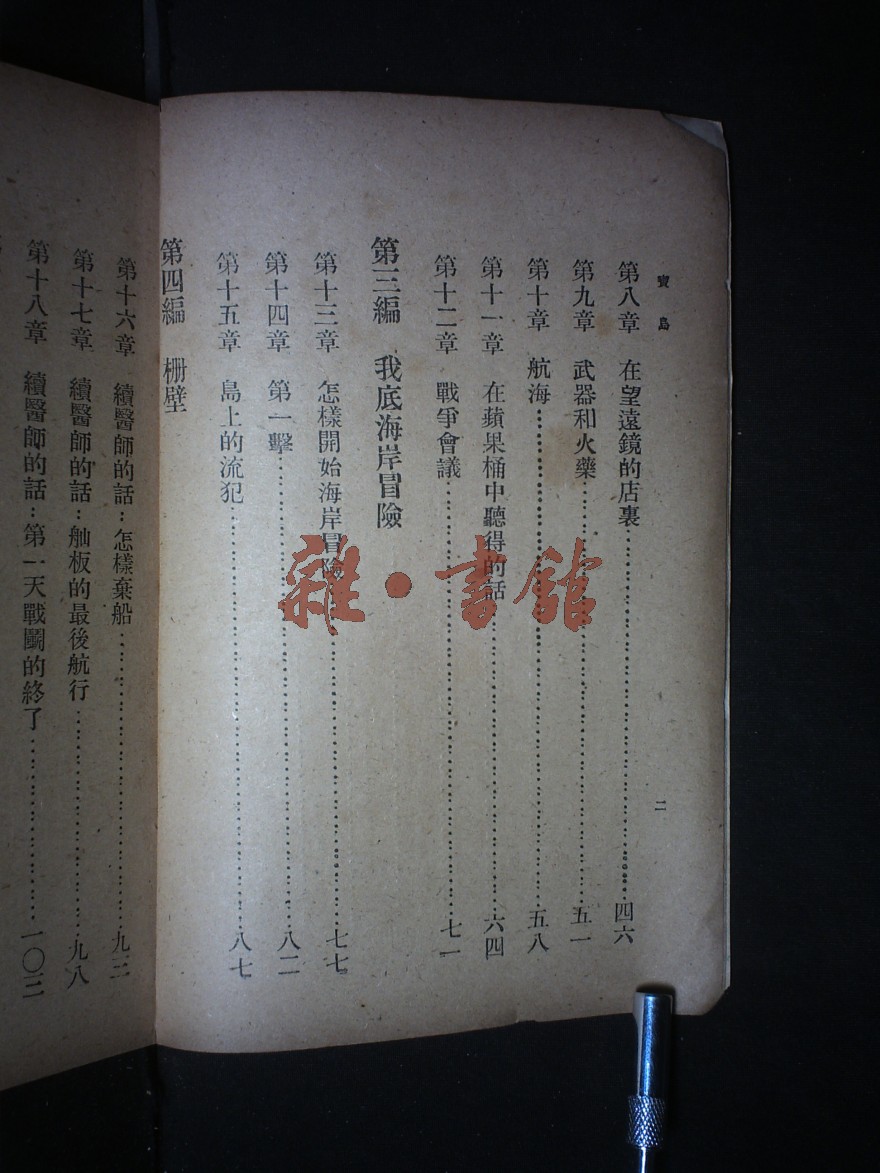 寶島
二
第八章　在望遠鏡的店裏……四六
第九章　武器和火藥……五一
第十章　航海……五八
第十一章　在蘋果桶中聽得的話……六四
第十二章　戰爭會議……七一
第三編　我底海岸冒險
第十三章　怎樣開始海岸冒險……七七
第十四章　第一擊……八二
第十五章　島上的流犯……八七
第四編　柵壁
第十六章　續醫師的話：怎樣棄船……九三
第十七章　續醫師的話：舢板的最後航行……九八
第十八章　續醫師的話：第一天戰鬭的終了……一〇三
雜·書館